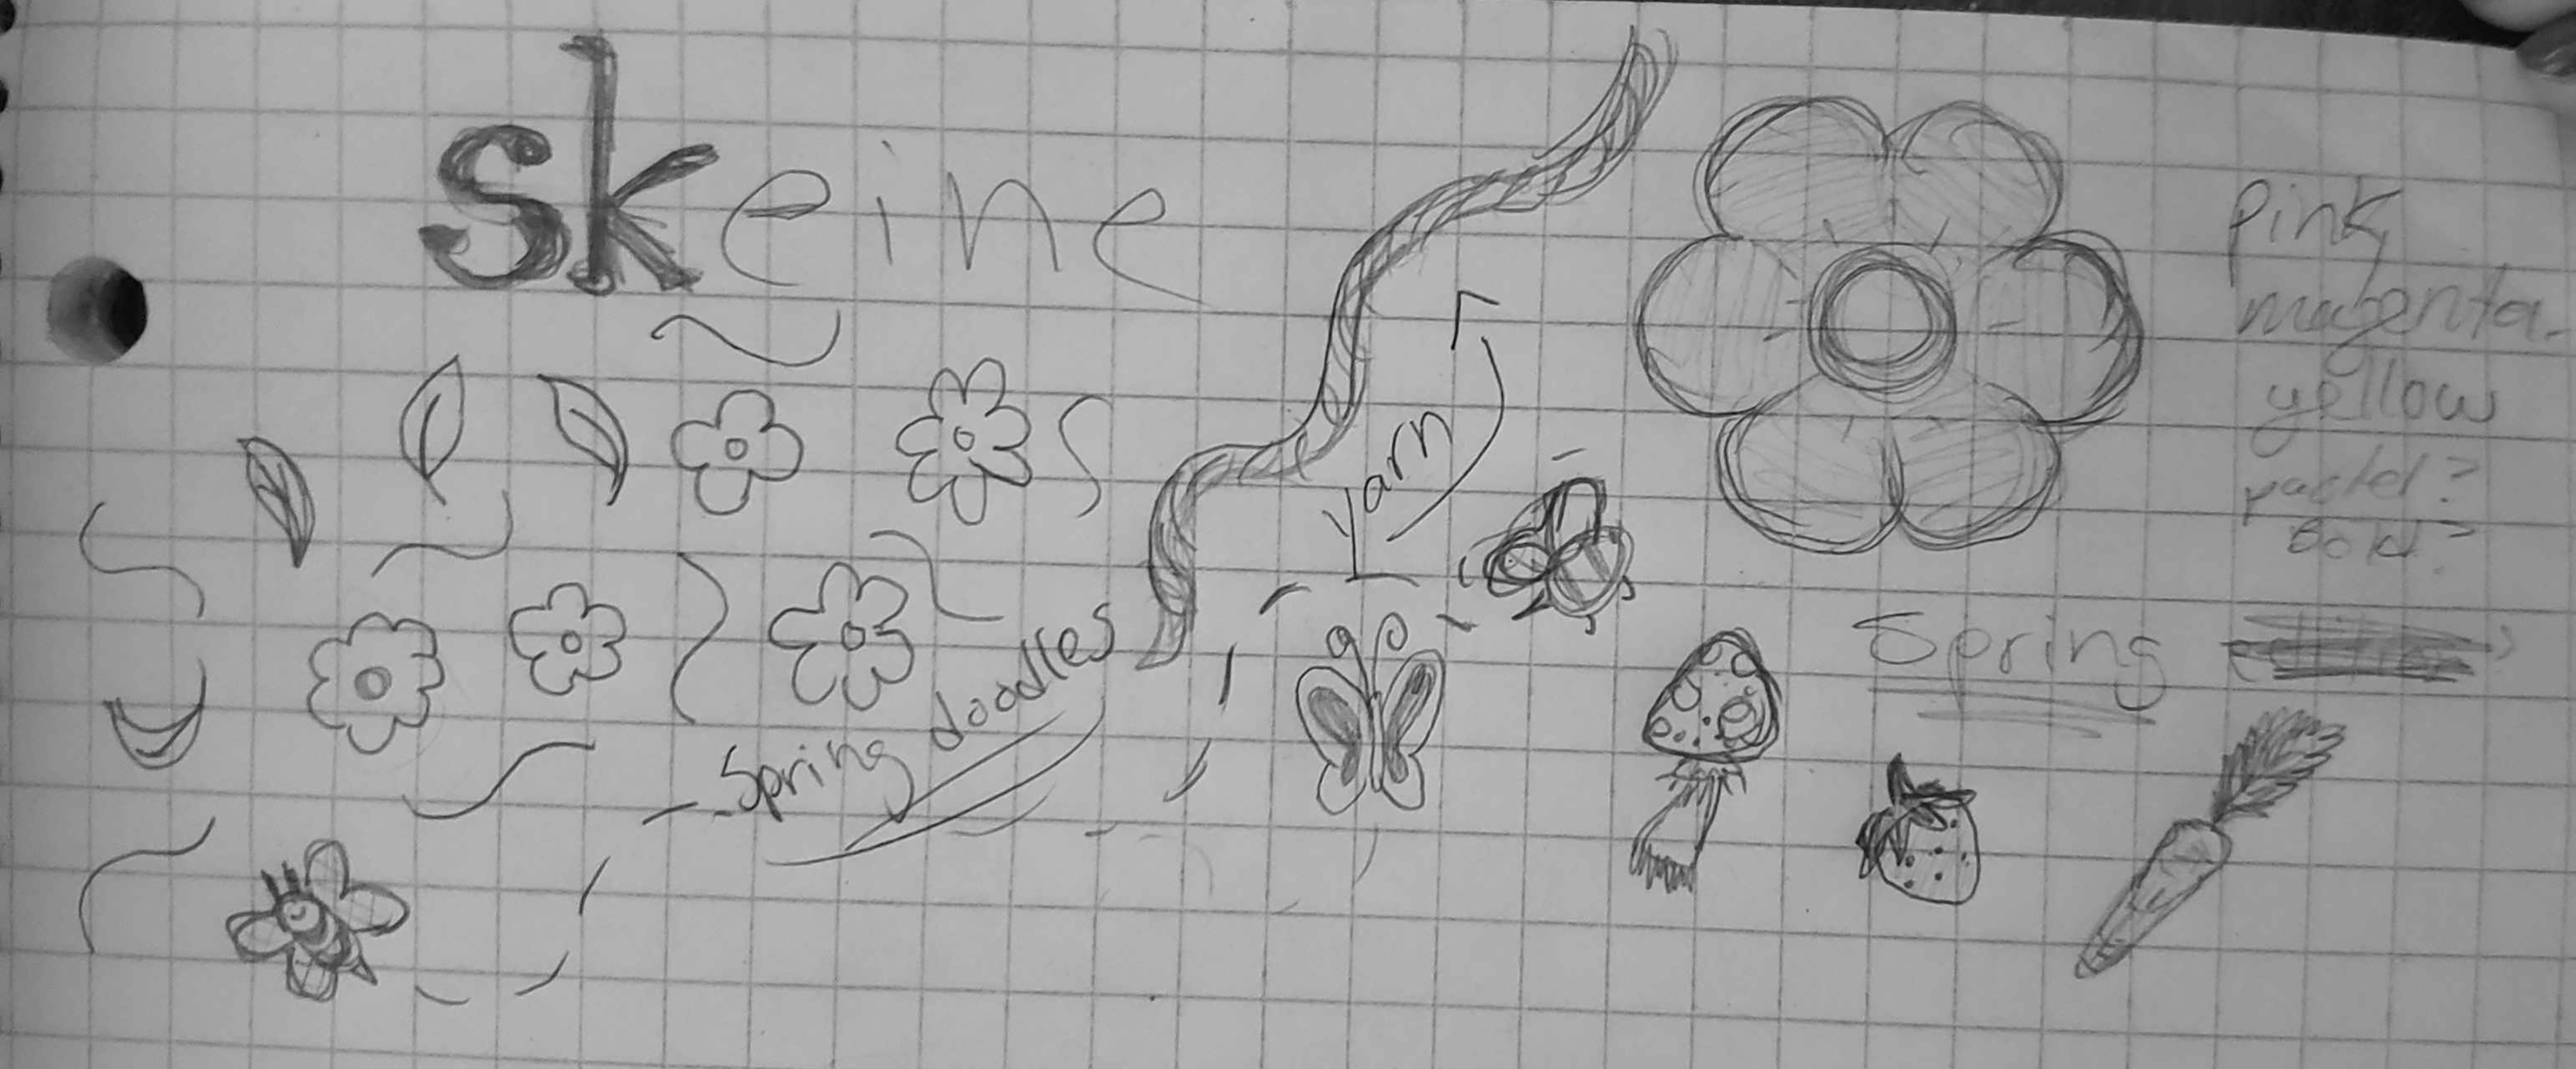 skeine
yarn
Spring doodles
pink,
magenta
yellow
pastel?
Bold?
Spring